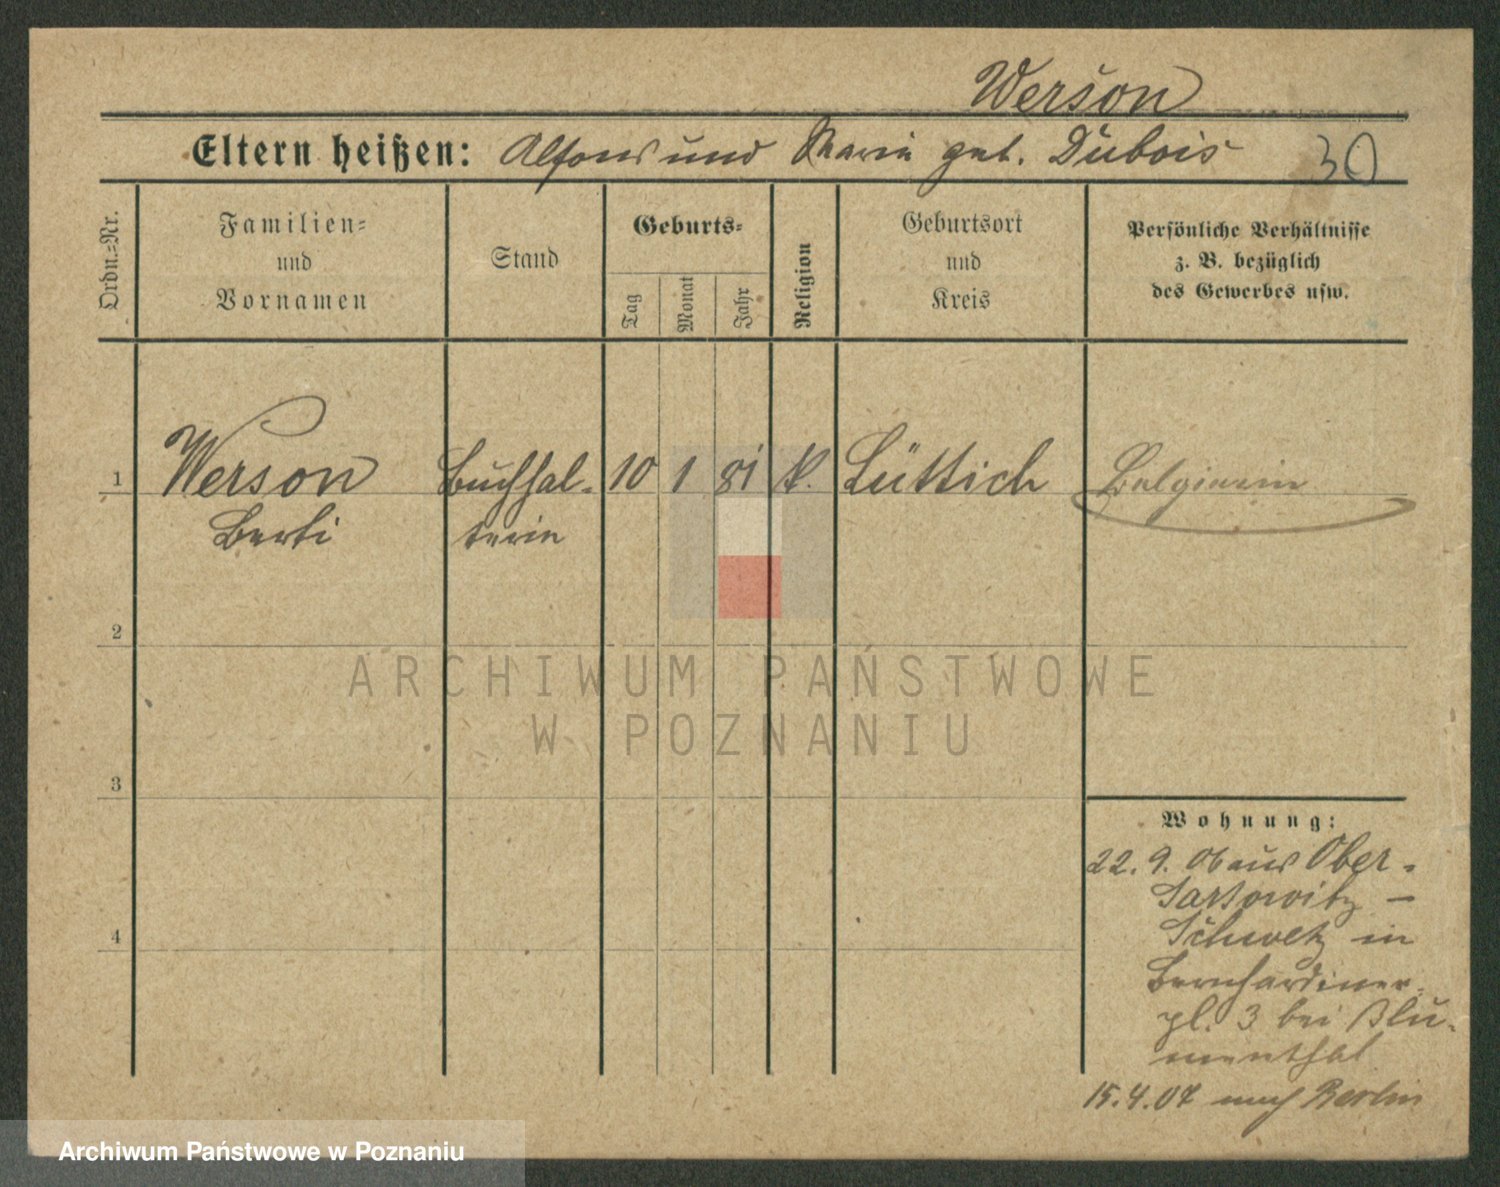 Werson
Eltern heißen: Alfons und Marie geb. Dubois 30
Ordn.=Nr.
Familien=
und
Vornamen
Stand
Geburts=
Tag
Monat
Jahr
Religion
Geburtsort
und
Kreis
Persönliche Verhältnisse
z. B. bezüglich
des Gewerbes usw.
1 Werson Buchhal- 10 1 81 k. Lüttich Belgierin
Berti terin
2
ARCHIWUM PAŃSTWOWE
W POZNANIU
3
Wohnung:
22. 9. 06 aus Ober-
Sartowitz –
Schwetz in
4
Bernhardiner-
pl. 3 bei Blu-
menthal
15.4.07 nach Berlin
Archiwum Państwowe w Poznaniu